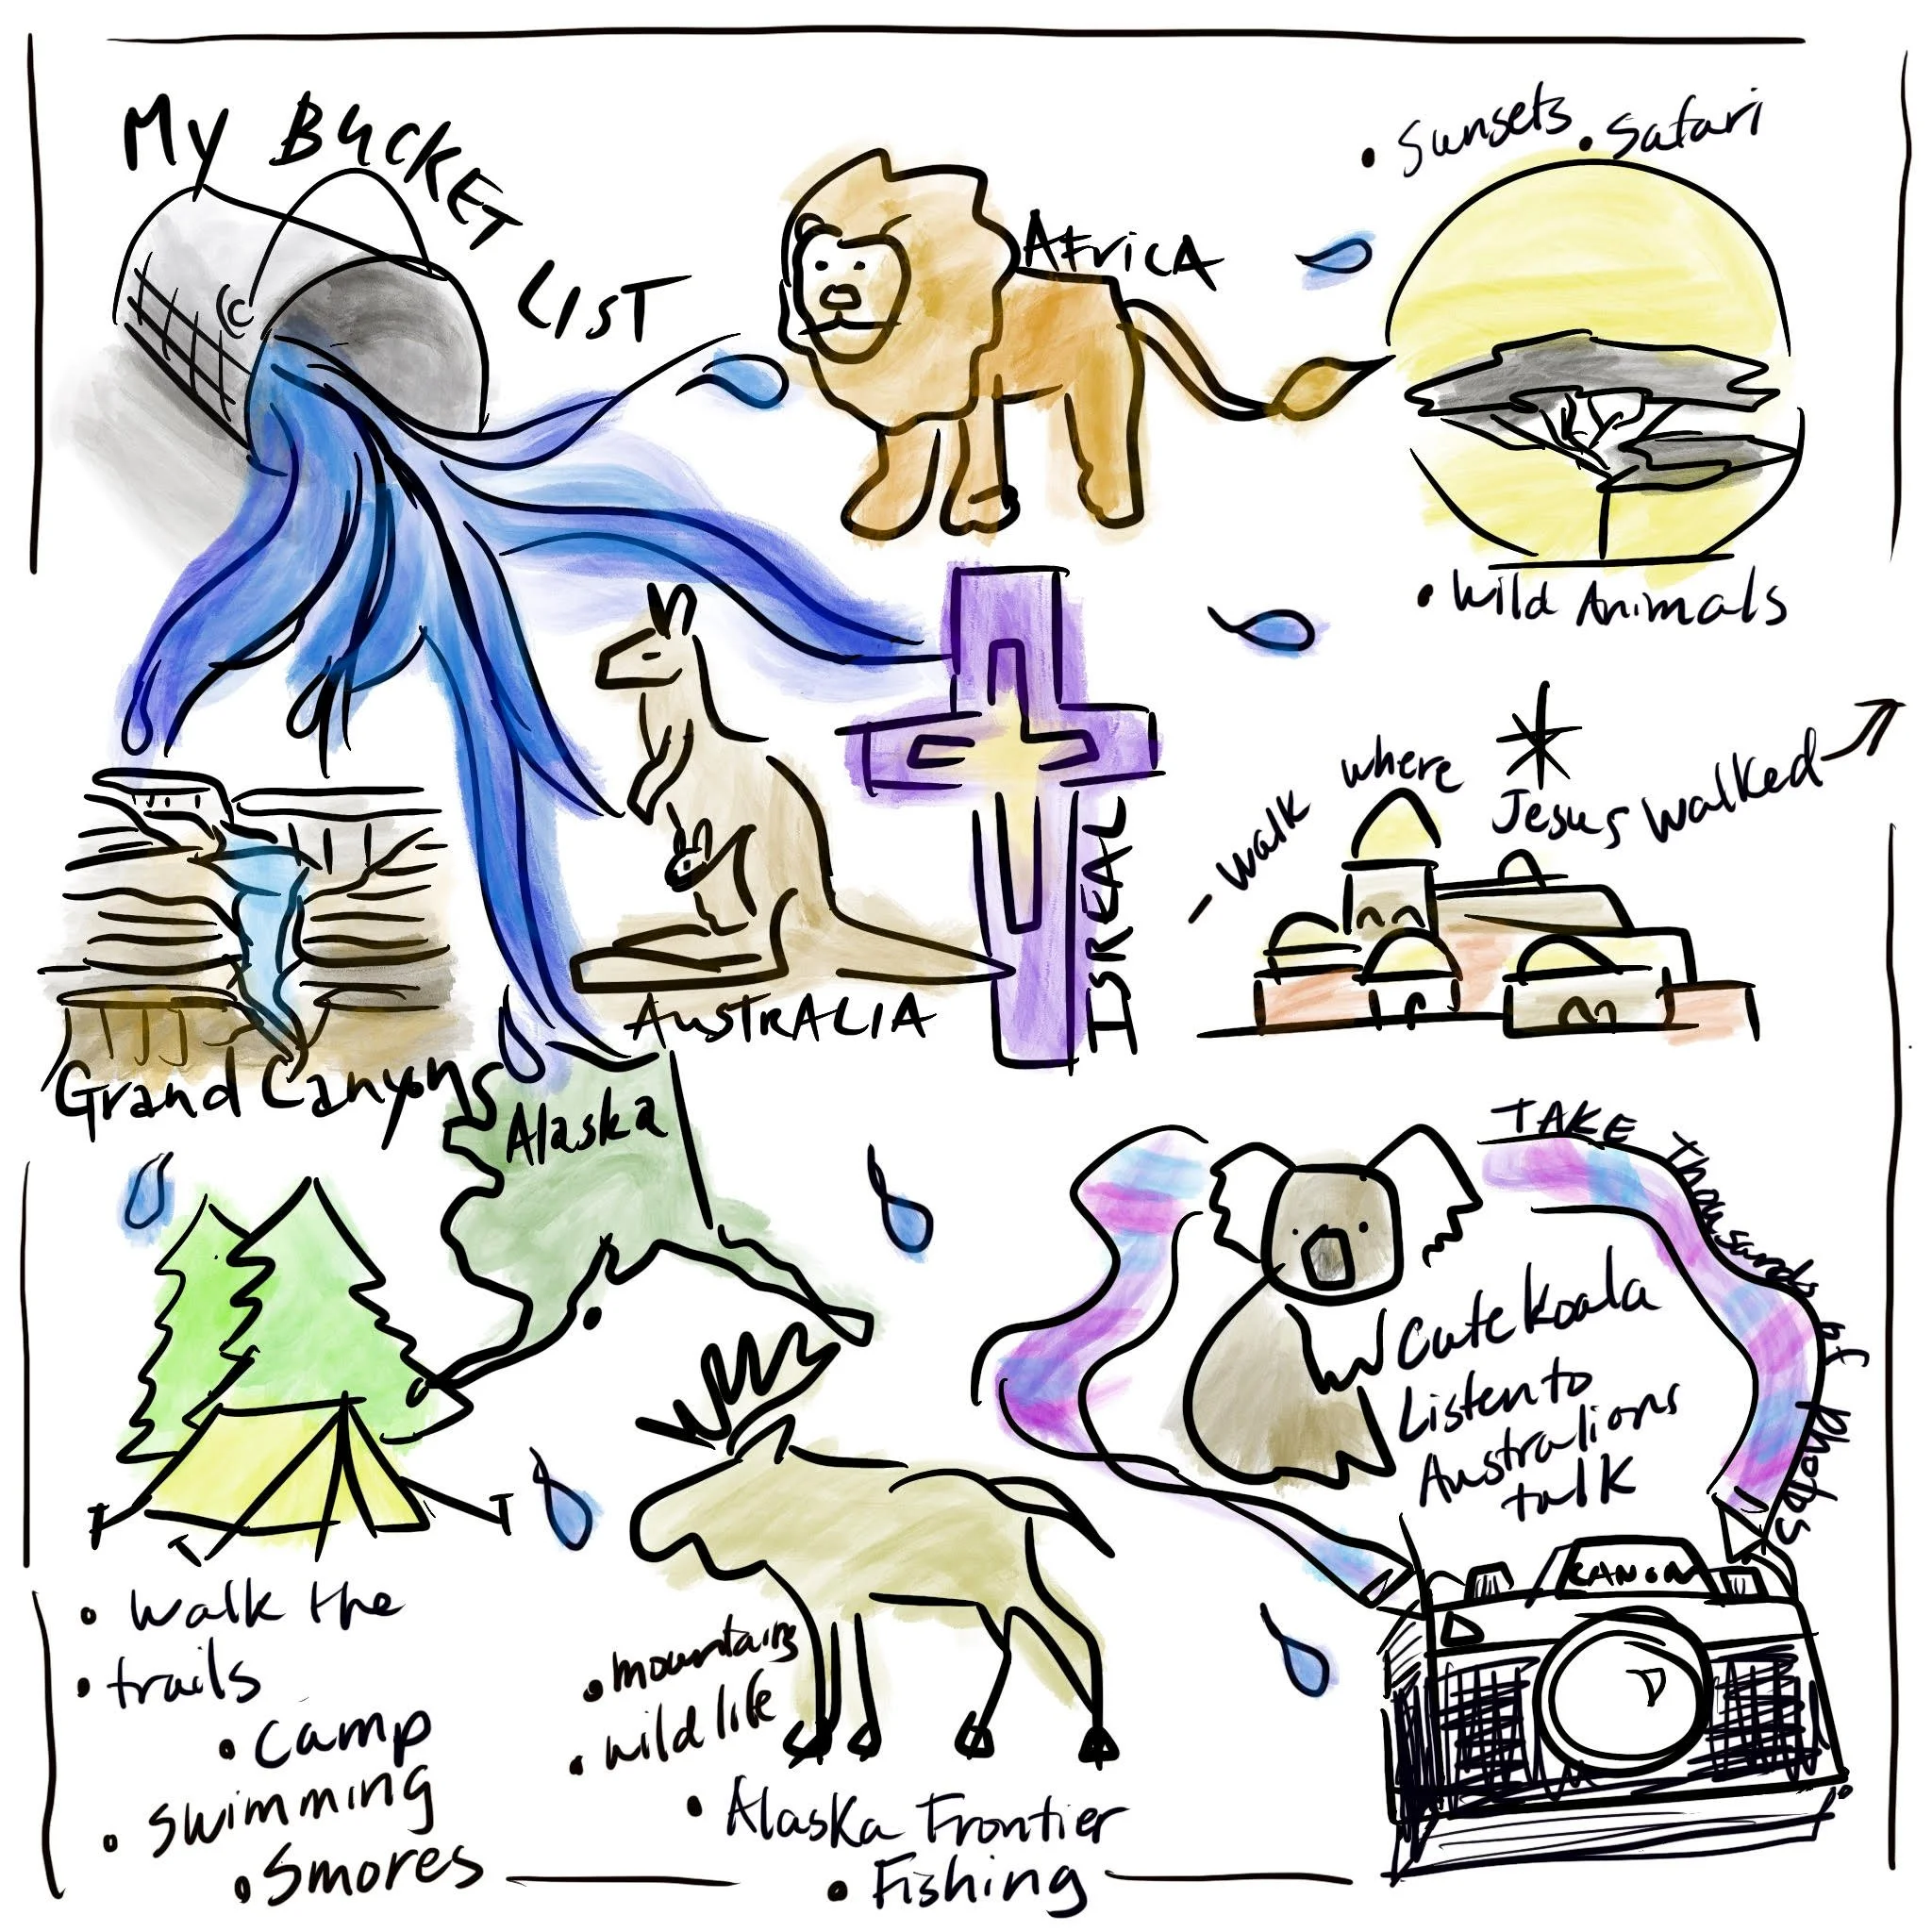 My BUCKET LIST
AFricA
• Sunsets • Safari
• Wild Animals
ISREAL
- Walk where Jesus Walked
AUSTRALIA
Grand Canyons
Alaska
• Walk the
• trails
• Camp
• Swimming
• Smores
• mountains
• wild life
• Alaska Frontier
• Fishing
Cute Koala
Listen to
Australions
talk
TAKE Thousands of Photos
CANON